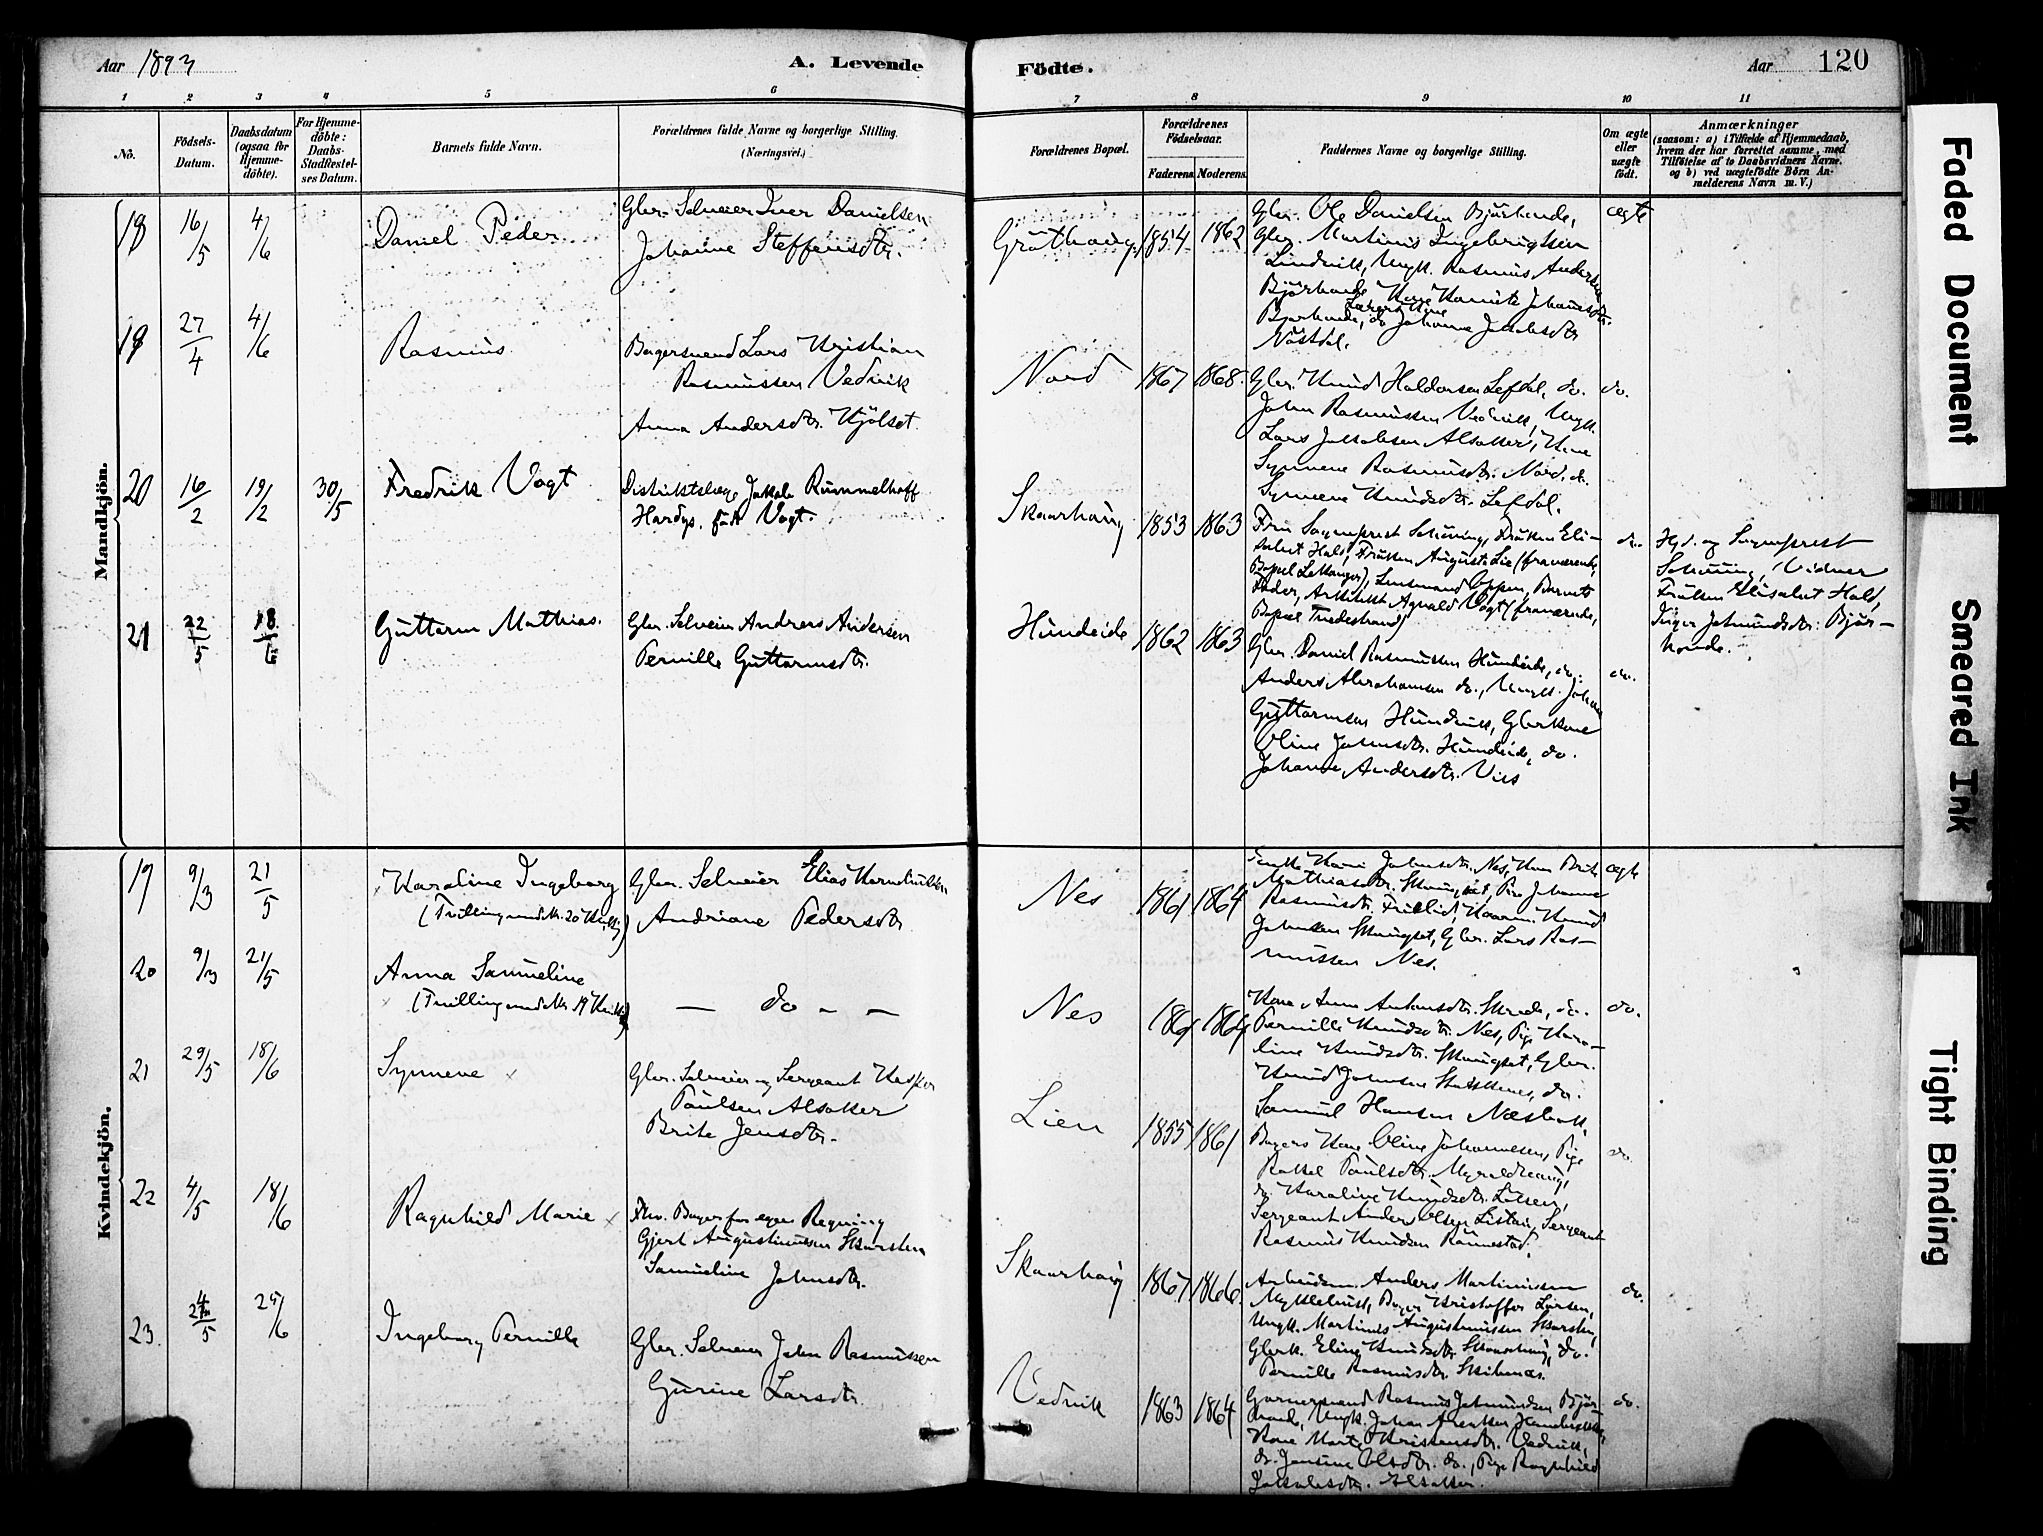 Aar 1893
A. Levende
Födte.
Aar
120
1 2 3 4 5 6 7 8 9 10 11
No.
Födsels-Datum.
Daabsdatum (ogsaa for Hjemmedöbte).
For Hjemmedöbte: Daabs-Stadfestelses Datum.
Barnets fulde Navn.
Forældrenes fulde Navne og borgerlige Stilling.
(Næringsvei.)
Forældrenes Bopæl.
Forældrenes Födselsaar.
Faderens Moderens
Faddernes Navne og borgerlige Stilling.
Om ægte eller uægte födt.
Anmærkninger
(saasom: a) i Tilfælde af Hjemmedaab, hvem der har forrettet samme, med Tilföielse af to Daabsvidners Navne, og b) ved uægtefödte Börn Anmelderens Navn m. V.)
Mandkjön.
18 16/5 4/6 Daniel Peder
Gbr. Selveier Iver Danielsen
Johanne Steffensdtr.
1854 1862
Gbr. Ole Danielsen Bjørhovde,
Gbr. Martinus Ingebrigtsen
Lindvik, Ungk. Rasmus Andersen
Johanne Jakobsdtr
Nøstdal.
ægte
19 27/4 4/6 Rasmus
Bagersvend Lars Kristian
Rasmussen Vedvik
Anna Andersdtr. Hjölset
Nord 1867 1868
Gbr. Knud Haldorsen Lefdal, do.
John Rasmussen Vedvik, Ungk.
Lars Jakobsen Alsaker, Kone
Synneve Rasmusdtr. Nord, do.
Synneve Knudsdtr. Lefdal.
do.
20 16/2 19/2 30/5 Fredrik Vogt
Distriktslæge Jakob Rummelhoff
Hardys, født Vogt.
Skaarhaug 1853 1863
Fru Sogneprest Schiøning, Frøken Eli-
sabet Hald, Frøken Augusta Lie (fraværende,
Bopæl Lekanger), Lensmand Oppen, Barnets
Fader, Arkitekt Agvald Vogt (fraværende,
Bopæl Tvedestrand)
do.
Hjd. og Sogneprest
Schiøning, Vidner
Frøken Elisabet Hald,
Inger Jetmundsdtr. Bjør-
hovde.
21 22/5 18/6 Guttorm Matthias.
Gbr. Selveier Andreas Andersen
Pernille Guttormsdtr.
Hundeide 1862 1863
Gbr. Daniel Rasmussen Hundeide, do.
Anders Abrahamsen do., Ungk. Johan
Guttormsen Hundeide, Gbrkone
Oline Johnsdtr. Hundeide, do.
Johanne Andersdtr.
do.
Kvindekjön.
19 9/3 21/5 Karoline Ingeborg
(Tvilling med Nr. 20 Kvkj)
Gbr. Selveier Elias Korneliussen
Andriane Pedersdtr
Nes 1861 1864
Johnsdtr. Nes, Kone Brite
Mathiasdtr. Maurset, Pige Johanne
Rasmusdtr. Friklid, Knud
Johnsen Maurset, Gbr. Lars Ras-
mussen Nes.
ægte
20 9/3 21/5 Anna Samueline
(Tvilling med Nr. 19 Kvkj)
— do — —
Nes 1861 1864
Kone Anne Antonsdtr. Skrede, do.
Pernille Knudsdtr. Nes, Pige Karo-
line Knudsdtr. Maurset, Gbr.
Knud Johnsen do.
Samuel Hansen Næsbakk.
do.
21 29/5 18/6 Synneve
Gbr. Selveier og Sergeant Kasper
Paulsen Alsaker
Brite Jensdtr.
Lien 1855 1861
Bagers Kone Oline Johannesen, Pige
Rakel Paulsdtr. Myroldhaug,
do. Karoline Knudsdtr. Lotsen,
Sergeant Anders Olsen Listau, Sergeant
Rasmus Knudsen Rønnestad.
do.
22 4/5 18/6 Ragnhild Marie
Fhv. Bager for egen Regning
Gjert Augustinussen Skarsten
Samueline Johnsdtr.
Skaarhaug 1867 1866
Anders Martinussen
Myklebust, Bager Kristoffer Larsen,
Ungk. Martinus Augustinussen Skarsten,
Gbrk. Eline Knudsdtr. Skaarhaug, do.
Pernille Rasmusdtr.
do.
23 24/5 25/6 Ingeborg Pernille
Gbr. Selveier John Rasmussen
Gurine Larsdtr
Vedvik 1863 1864
Garversvend Rasmus Jetmundsen Bjør-
hovde, Ungk. Johan
Kone Marte Kristensdtr. Vedvik,
do. Jensine Olsdtr. do., Pige Ragnhild
Jakobsdtr. Alsaker.
do.
Faded Document
Smeared Ink
Tight Binding